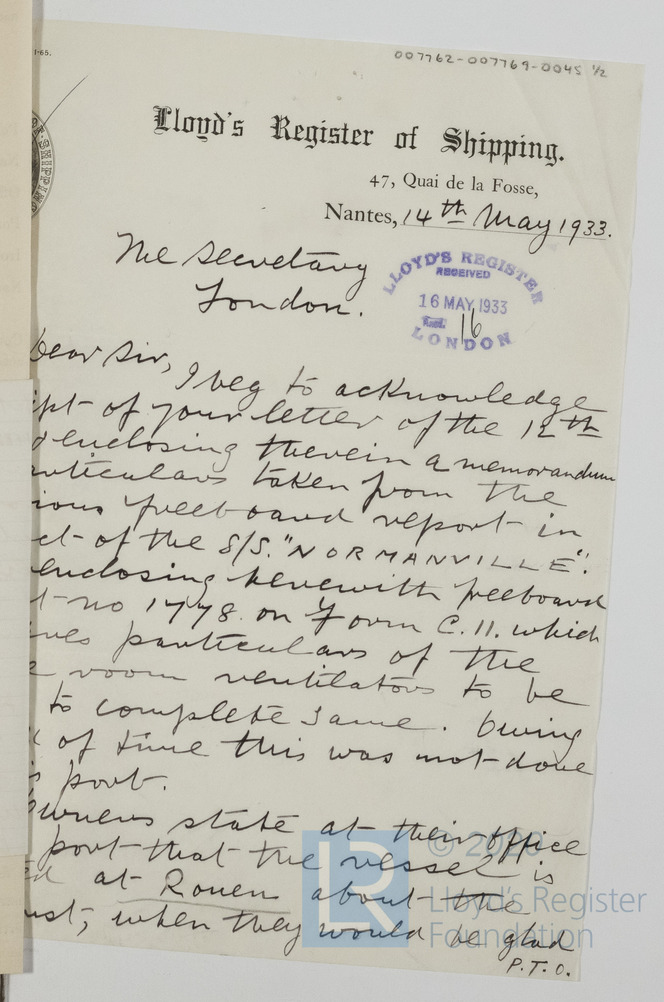 1-65.
007762-007769-0045 1/2
Lloyd's Register of Shipping.
47, Quai de la Fosse,
Nantes, 14th May 1933.
The Secretary
London.
LLOYD'S REGISTER
RECEIVED
16 MAY 1933
16
LONDON
Dear Sir,
I beg to acknowledge
ipt of your letter of the 12th
d enclosing therein a memorandum
articulars taken from the
ious freeboard report in
ct of the S/S. "NORMANVILLE".
enclosing herewith freeboard
t no 1778 on Form C.11. which
ives particulars of the
e room ventilators to be
to complete same. Owing
k of time this was not done
s port.
Owners state at their office
port that the vessel is
ed at Rouen about the
ust, when they would be glad
P.T.O.
© 2020
Lloyd's Register
Foundation
LR